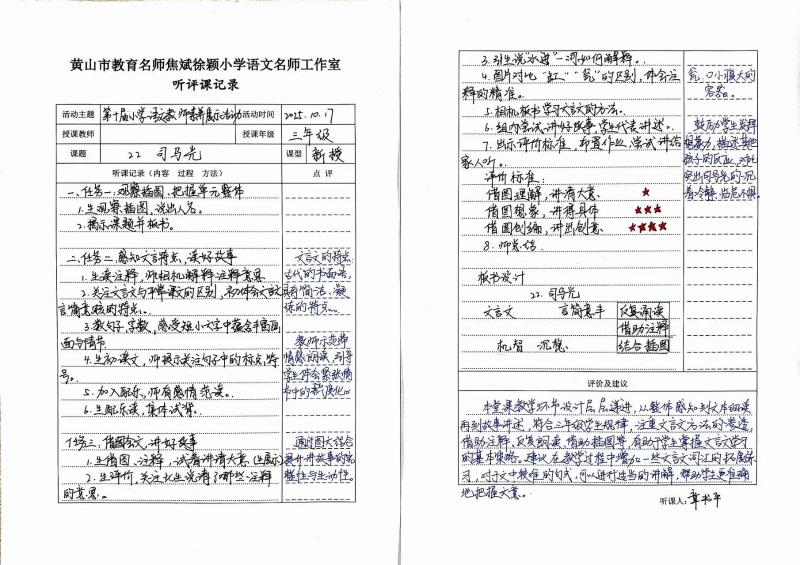 黄山市教育名师焦斌徐颖小学语文名师工作室
听评课记录
活动主题 第十届小学语文教师素养展示活动 活动时间 2025.10.17
授课教师 授课年级 三年级
课题 22 司马光 课型 新授
听课记录（内容 过程 方法） 点评
一、任务一：观察插图，把握单元整体
1.生观察插图，说出人名。
2.揭示课题并板书。
二、任务二：感知文言特点，读好故事
1.生读注释，师相机解释注释意思。
2.关注文言文与平常课文的区别，初步体会文言文
言简意赅的特点。
3.数句子、字数，感受短小文字中蕴含丰富画
面与情节
4.生初课文，师提示关注句子中的标点符
号。
5.加入配乐，师有感情范读。
6.生配乐读，集体试背。
文言文的特点：
古代的书面语，
具有简洁、凝
练的特点。
教师示范带
情感朗读，引导
学生体会紧张情
任务三、借图会文，讲好故事
1.生借图、注释，试着讲清大意（生展示）
2.生评价，关注此生说清了哪些注释
的意思。
通过图文结合
提升讲故事的完
整性与生动性。
3.引生说“水迸”一词如何解释。
4.图片对比“缸”“瓮”的区别，体会注
释的精准。
5.相机板书学习文言文的方法。
6.组内尝试讲好故事，学生代表讲述。
7.出示评价标准，布置作业：尝试讲给
家人听。
评价标准：
借图理解，讲清大意 ★
借图想象，讲得具体 ★★★
借图创编，讲出创意 ★★★★
8.师总结
瓮，口小腹大的
容器。
鼓励学生发挥
想象力，描述其他
孩子的反应，对比
突出司马光的沉
着冷静、临危不惧。
板书设计
22.司马光
文言文 言简意丰 反复诵读
借助注释
机智 沉稳 结合插图
评价及建议
本堂课教学环节设计层层递进，从整体感知到文本细读
再到故事讲述，符合三年级学生规律，注重文言文方法的渗透，
借助注释、反复朗读、借助插图等，有助于学生掌握文言文学习
的基本策略。建议在教学过程中增加一些文言词汇的拓展练
习，对于文中较难的句式，可以进行适当的讲解，帮助学生更准确
地把握文意。
听课人：